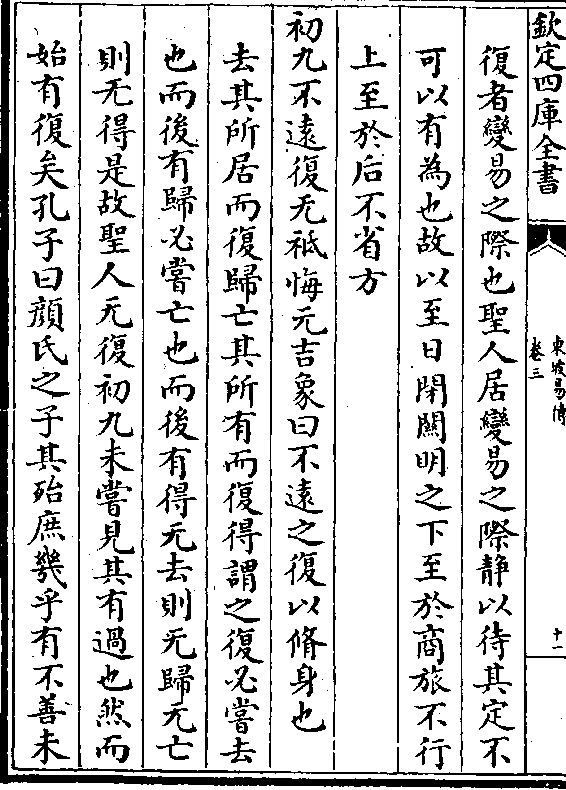 欽定四庫全書
東坡易傳
卷三
十一
復者變易之際也聖人居變易之際静以待其定不
可以有為也故以至日閉闗明之下至於商旅不行
上至於后不省方
初九不遠復无祗悔元吉象曰不遠之復以脩身也
去其所居而復歸亡其所有而復得謂之復必嘗去
也而後有歸必嘗亡也而後有得无去則无歸无亡
則无得是故聖人无復初九未嘗見其有過也然而
始有復矣孔子曰顔氏之子其殆庶幾乎有不善未